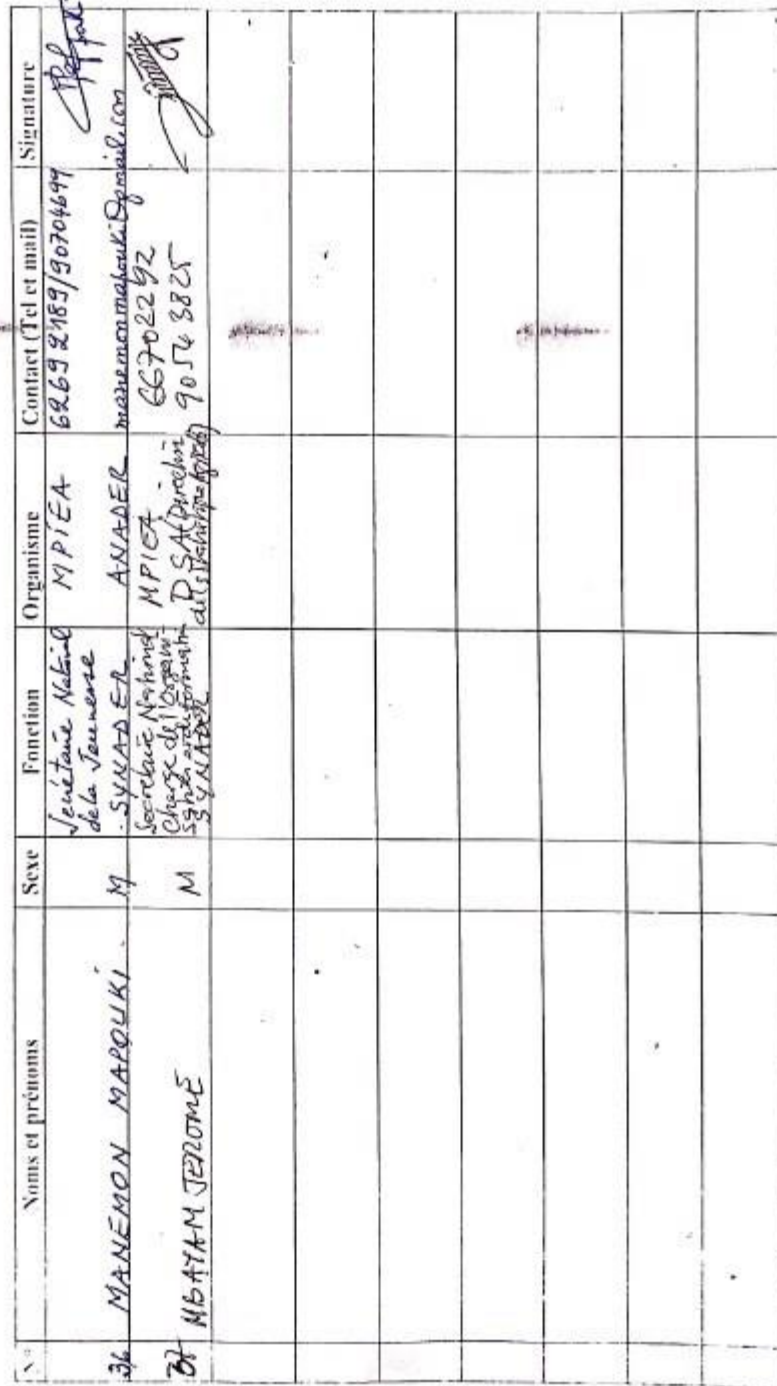 N° Noms et prénoms Sexe Fonction Organisme Contact (Tel et mail) Signature
36 MANEMON MAPOUKI M
Secrétaire National
de la Jeunesse
SYNADER
MPIEA
ANADER
62692189/90704699
manemonmapouki@gmail.com
37 MBAYAM JEROME M
Secrétaire National
Chargé de l'Organi-
et de Formation
SYNADER
MPIEA
DSA (Direction
66702292
90543825